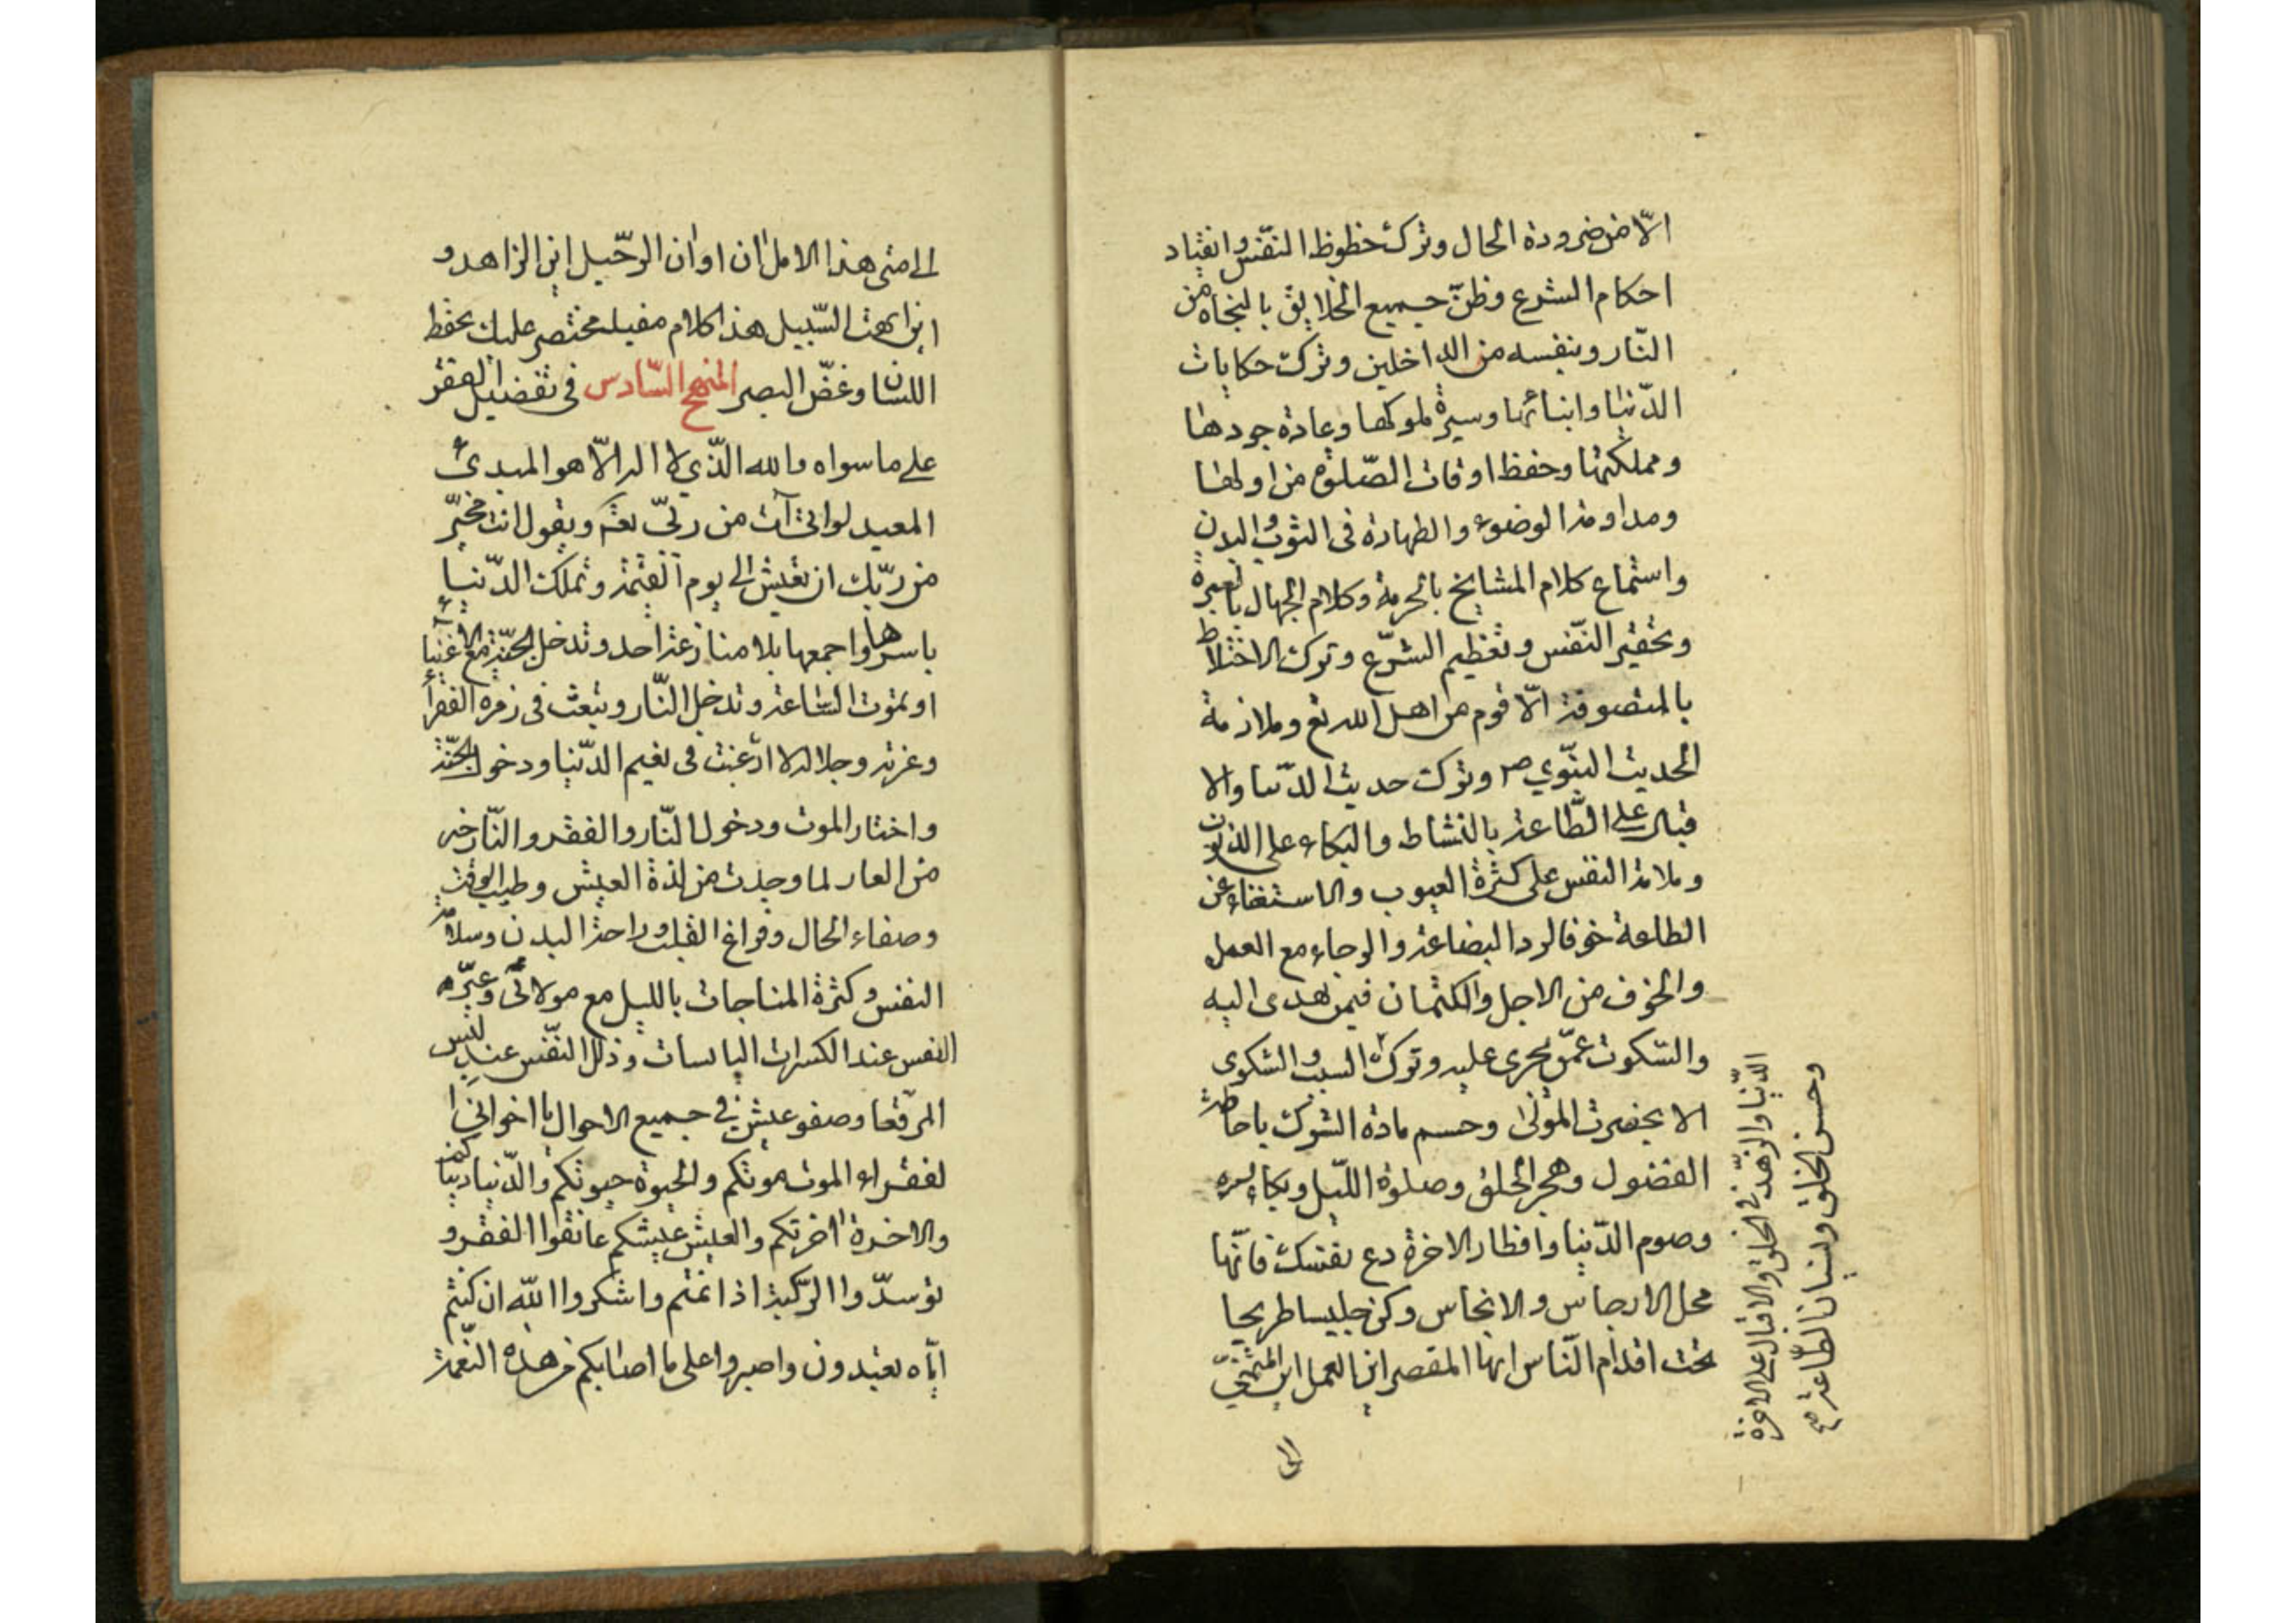 الّا من ضرورة الحال وترك حظوظ النّفس وانقياد
احكام الشرع وظنّ جميع الخلايق بالنجاة من
النّار وبنفسه من الداخلين وترك حكايات
الدّنيا وابنائها وسيرة ملوكها وعادة جودها
ومملكتها وحفظ اوقات الصّلوة من اولها
ومداومة الوضوء والطهارة فى الثوب والبدن
واستماع كلام المشايخ بالحرمة وكلام الجهال بالعبرة
وتحقير النّفس وتعظيم الشرّع وترك الاختلاط
بالمتصوفة الّا قوم من اهل الله تع وملازمة
الحديث النبّوي ص وترك حديث الدّنيا والا
قبال على الطّاعة بالنشاط والبكاء على الذنوب
وملامة النفس على كثرة العيوب والاستغناء عن
الطاعة خوفا لرد البضاعة والرجاء مع العمل
والخوف من الاجل والكتمان فيمن هدى اليه
والسّكوت عمّن يجرى عليه وترك السبب والشكوى
الا بحضرت المولىٰ وحسم مادة الشرك باحاطة
الفضول وهجر الخلق وصلوة اللّيل وبكاء
وصوم الدّنيا وافطار الاخرة دع نفسك فانّها
محل الارجاس والانجاس وكن جليسا طريحا
تحت اقدام النّاس ايها المقصر اين العمل اين المتمنّي
الى
الدّنيا والزهّد فى الخلق والاقبال على الاخرة
وحسن الخلق ولسانا الطّاعة صح
الى متى هذا الامل ان اوان الرّحيل اين الزاهد و
اين ابهت السّبيل هذا كلام مفيد مختصر عليك بحفظ
اللسان وغضّ البصر المنهج السّادس فى تفضيل الفقر
على ما سواه والله الذّي لا اله الّا هو المبدئ
المعيد لو اتى آت من ربّي تعه ويقول انت مخيّر
من ربّك ان تعيش الى يوم القيمة وتملك الدّنيا
باسرها واجمعها بلا منازعة احد وتدخل الجنّة مع الاغنياء
او تموت السّاعة وتدخل النّار وتبعث فى زمرة الفقراء
وعزته وجلاله لا ارغبت فى نعيم الدّنيا ودخول الجنّة
واختار الموت ودخول النّار والفقر والنّار خير
من العار لما وجدت من لذة العيش وطيب الوقت
وصفاء الحال وفراغ القلب وراحة البدن وسلامة
النفس وكثرة المناجات بالليل مع مولائى وعبّره
النفس عند الكسرات اليابسات وذل النّفس عند لبس
المرقّعا وصفو عيش فى جميع الاحوال يا اخوانى ا
لفقراء الموت موتكم والحيوة حيوتكم والدّنيا دنياكم
والاخرة اخرتكم والعيش عيشكم عانقوا الفقر و
توسدّوا الرّكبة اذا نمتم واشكروا اللّه ان كنتم
ايّاه تعبدون واصبروا على ما اصابكم من هذه النّعمة